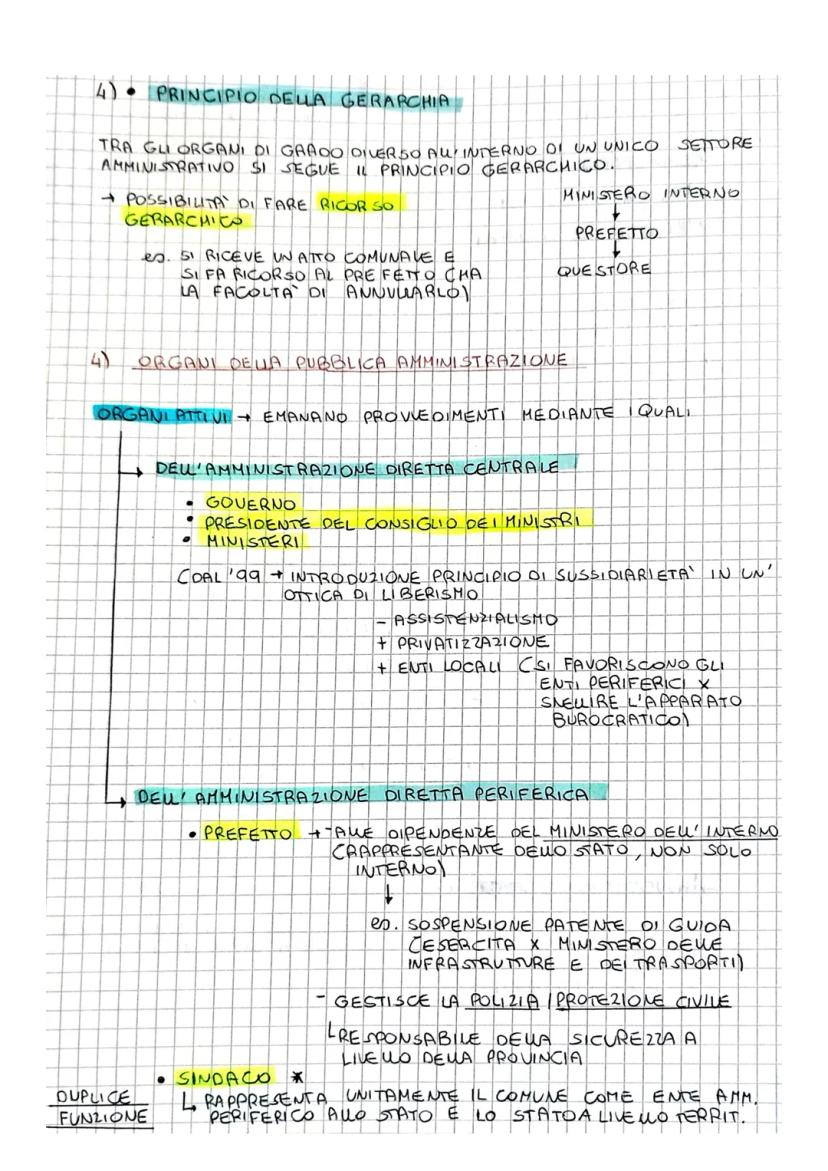 4) • PRINCIPIO DELLA GERARCHIA
TRA GLI ORGANI DI GRADO DIVERSO ALL'INTERNO DI UN UNICO SETTORE
AMMINISTRATIVO SI SEGUE IL PRINCIPIO GERARCHICO.
→ POSSIBILITA' DI FARE RICORSO
GERARCHICO
es. SI RICEVE UN ATTO COMUNALE E
SI FA RICORSO AL PREFETTO (HA
LA FACOLTA' DI ANNULLARLO)
MINISTERO INTERNO
↓
PREFETTO
↓
QUESTORE
4) ORGANI DELLA PUBBLICA AMMINISTRAZIONE
ORGANI ATTIVI → EMANANO PROVVEDIMENTI MEDIANTE I QUALI
→ DELL'AMMINISTRAZIONE DIRETTA CENTRALE
• GOVERNO
• PRESIDENTE DEL CONSIGLIO DEI MINISTRI
• MINISTERI
(DAL '99 → INTRODUZIONE PRINCIPIO DI SUSSIDIARIETA' IN UN'
OTTICA DI LIBERISMO
- ASSISTENZIALISMO
+ PRIVATIZZAZIONE
+ ENTI LOCALI (SI FAVORISCONO GLI
ENTI PERIFERICI X
SNELLIRE L'APPARATO
BUROCRATICO)
→ DELL' AMMINISTRAZIONE DIRETTA PERIFERICA
• PREFETTO → - ALLE DIPENDENZE DEL MINISTERO DELL'INTERNO
(RAPPRESENTANTE DELLO STATO, NON SOLO
INTERNO)
↓
es. SOSPENSIONE PATENTE DI GUIDA
(ESERCITA X MINISTERO DELLE
INFRASTRUTTURE E DEI TRASPORTI)
- GESTISCE LA POLIZIA / PROTEZIONE CIVILE
↳ RESPONSABILE DELLA SICUREZZA A
LIVELLO DELLA PROVINCIA
• SINDACO *
DUPLICE
FUNZIONE
↳ RAPPRESENTA UNITAMENTE IL COMUNE COME ENTE AMM.
PERIFERICO ALLO STATO E LO STATO A LIVELLO TERRIT.